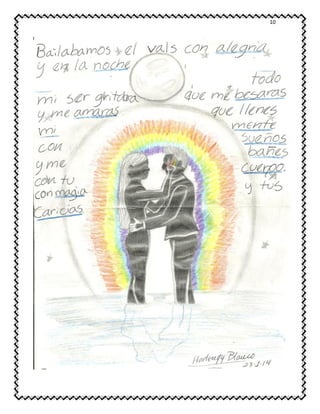 10
Bailabamos el vals con alegria
y en la noche
todo
mi ser gritaba que me besaras
y me amaras que llenes
mi mente
con sueños
y me bañes
con tu cuerpo.
con magia y tus
Caricias
Blanco
23-5-14